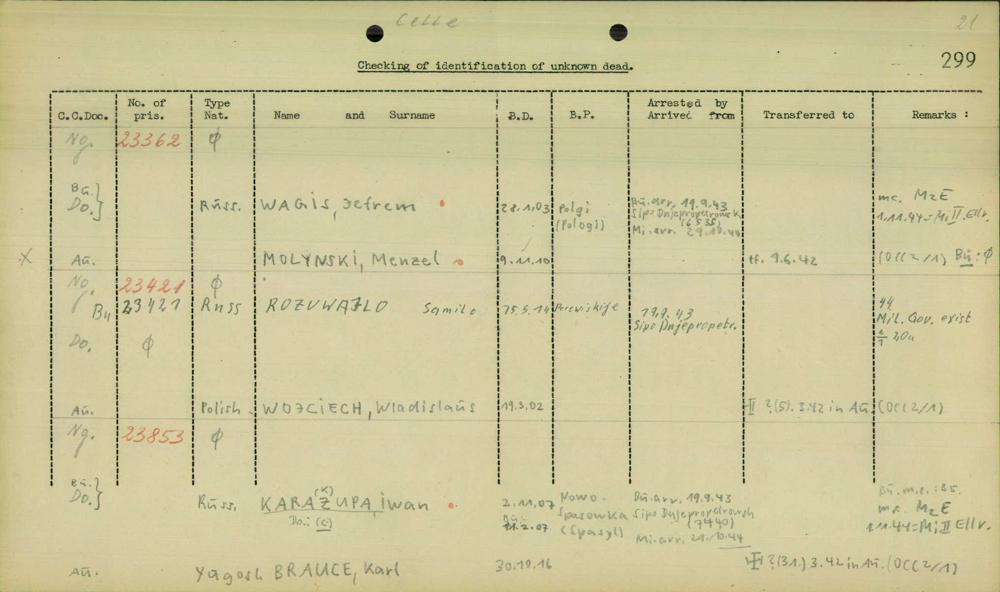 Celle
21
299
Checking of identification of unknown dead.
C.C.Doc. No. of pris. Type Nat. Name and Surname B.D. B.P. Arrested by Arrived from Transferred to Remarks :
Ng. 23362 φ
Bu.} Do.} Rüss. WAGIS, Jefrem 28.1.03 Polgi (Pologi) Bü.arr. 19.9.43 Sipo Dnjepropetrowsk (6535) Mi.arr. 29.10.44 mc. MzE 1.11.44=Mi II Ellr.
X Aü. MOLYNSKI, Menzel 9.11.10 tf. 9.6.42 (OCC2/1) Bü: φ
Ng. 23421 φ
Bu 23421 Russ ROZUWAJLO Samilo 15.5.14 19.9.43 Sipo Dnjepropetr. 44 Mil. Gov. exist 20a
Do. φ
Aü. Polish WOJCIECH, Wladislaüs 19.3.02 ?(5).3.42 in Aü. (OCC2/1)
Ng. 23853 φ
Bü.} Do.} Rüss. KARAZUPA, iwan (K) Do: (C) 2.11.07 Bü: 11.2.07 Nowo-Spasowka (Spasyl) Bü.arr. 19.9.43 Sipo Dnjepropetrowsk (7440) Mi.arr. 29.10.44 Bü.m.c.:85. mc MzE 1.11.44=Mi II Ellr.
Aü. Yügosl. BRAUCE, Karl 30.10.16 ?(31.) 3.42 in Aü. (OCC2/1)